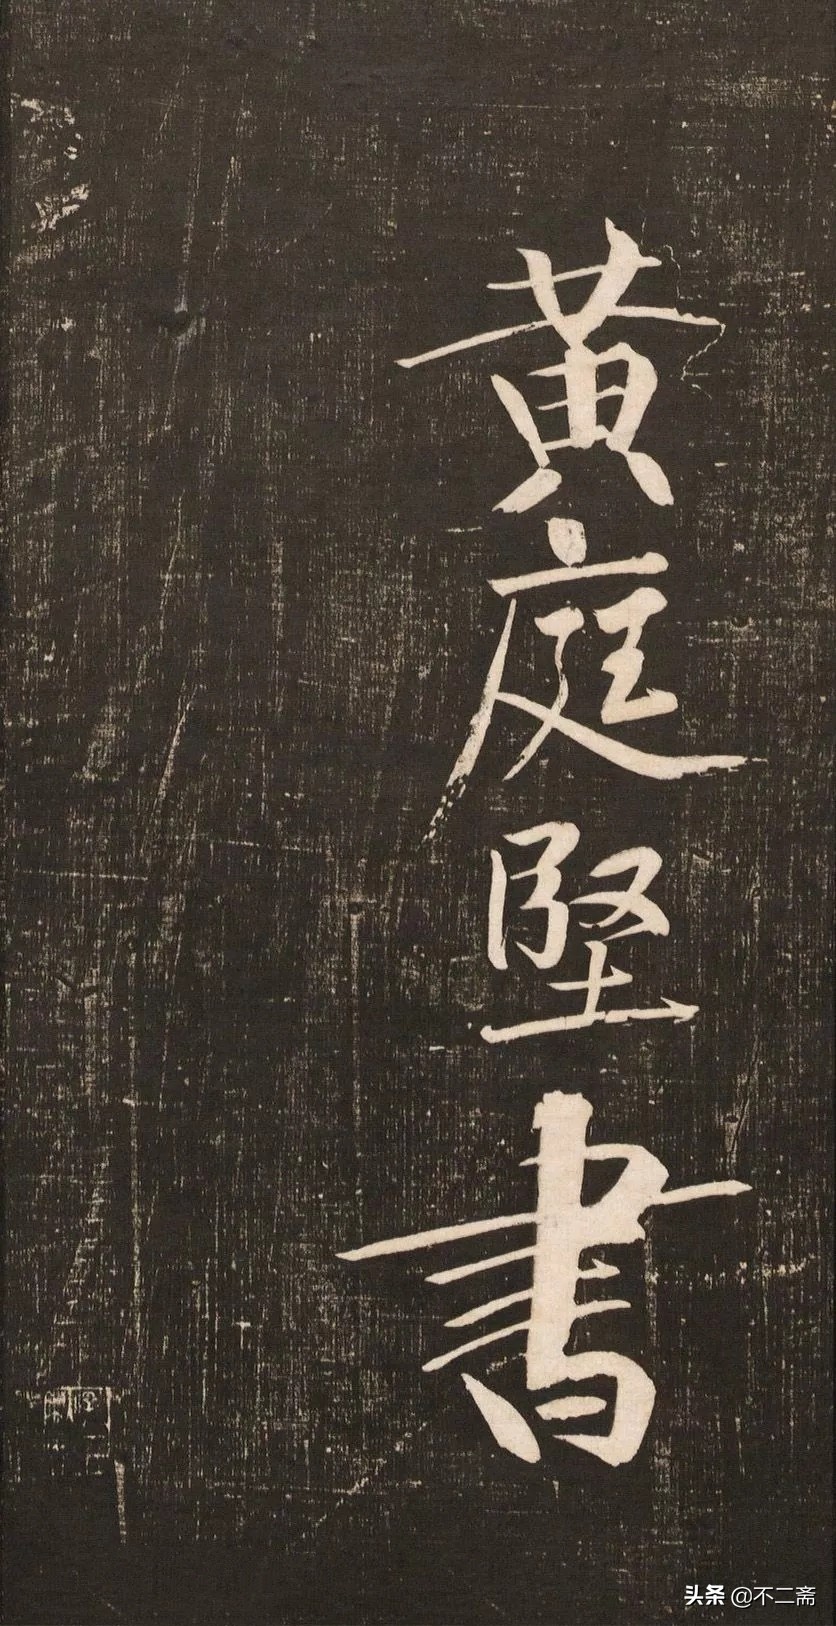 黄庭堅書
头条 @不二斋